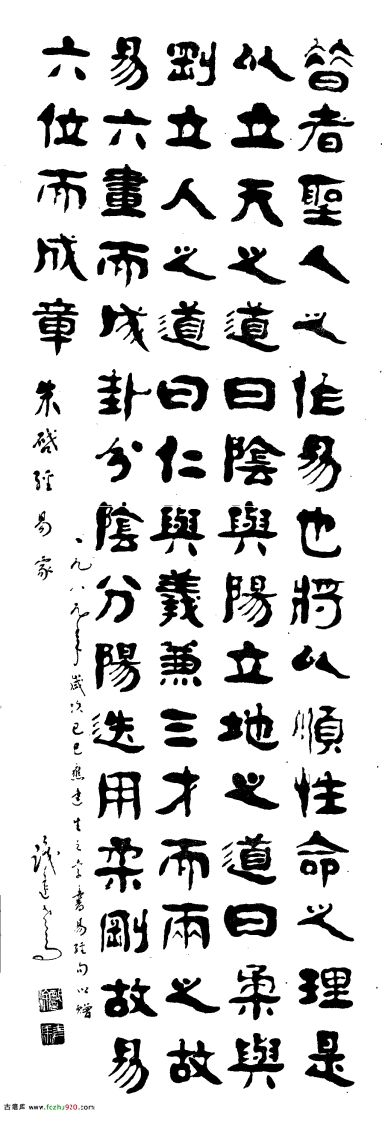 昔者聖人之作易也將以順性命之理是
以立天之道曰陰與陽立地之道曰柔與
剛立人之道曰仁與義兼三才而兩之故
易六畫而成卦分陰分陽迭用柔剛故易
六位而成章 朱啓經易家
一九八九年歲次己巳應建生之書易經句以贈
www.fczhj920.com